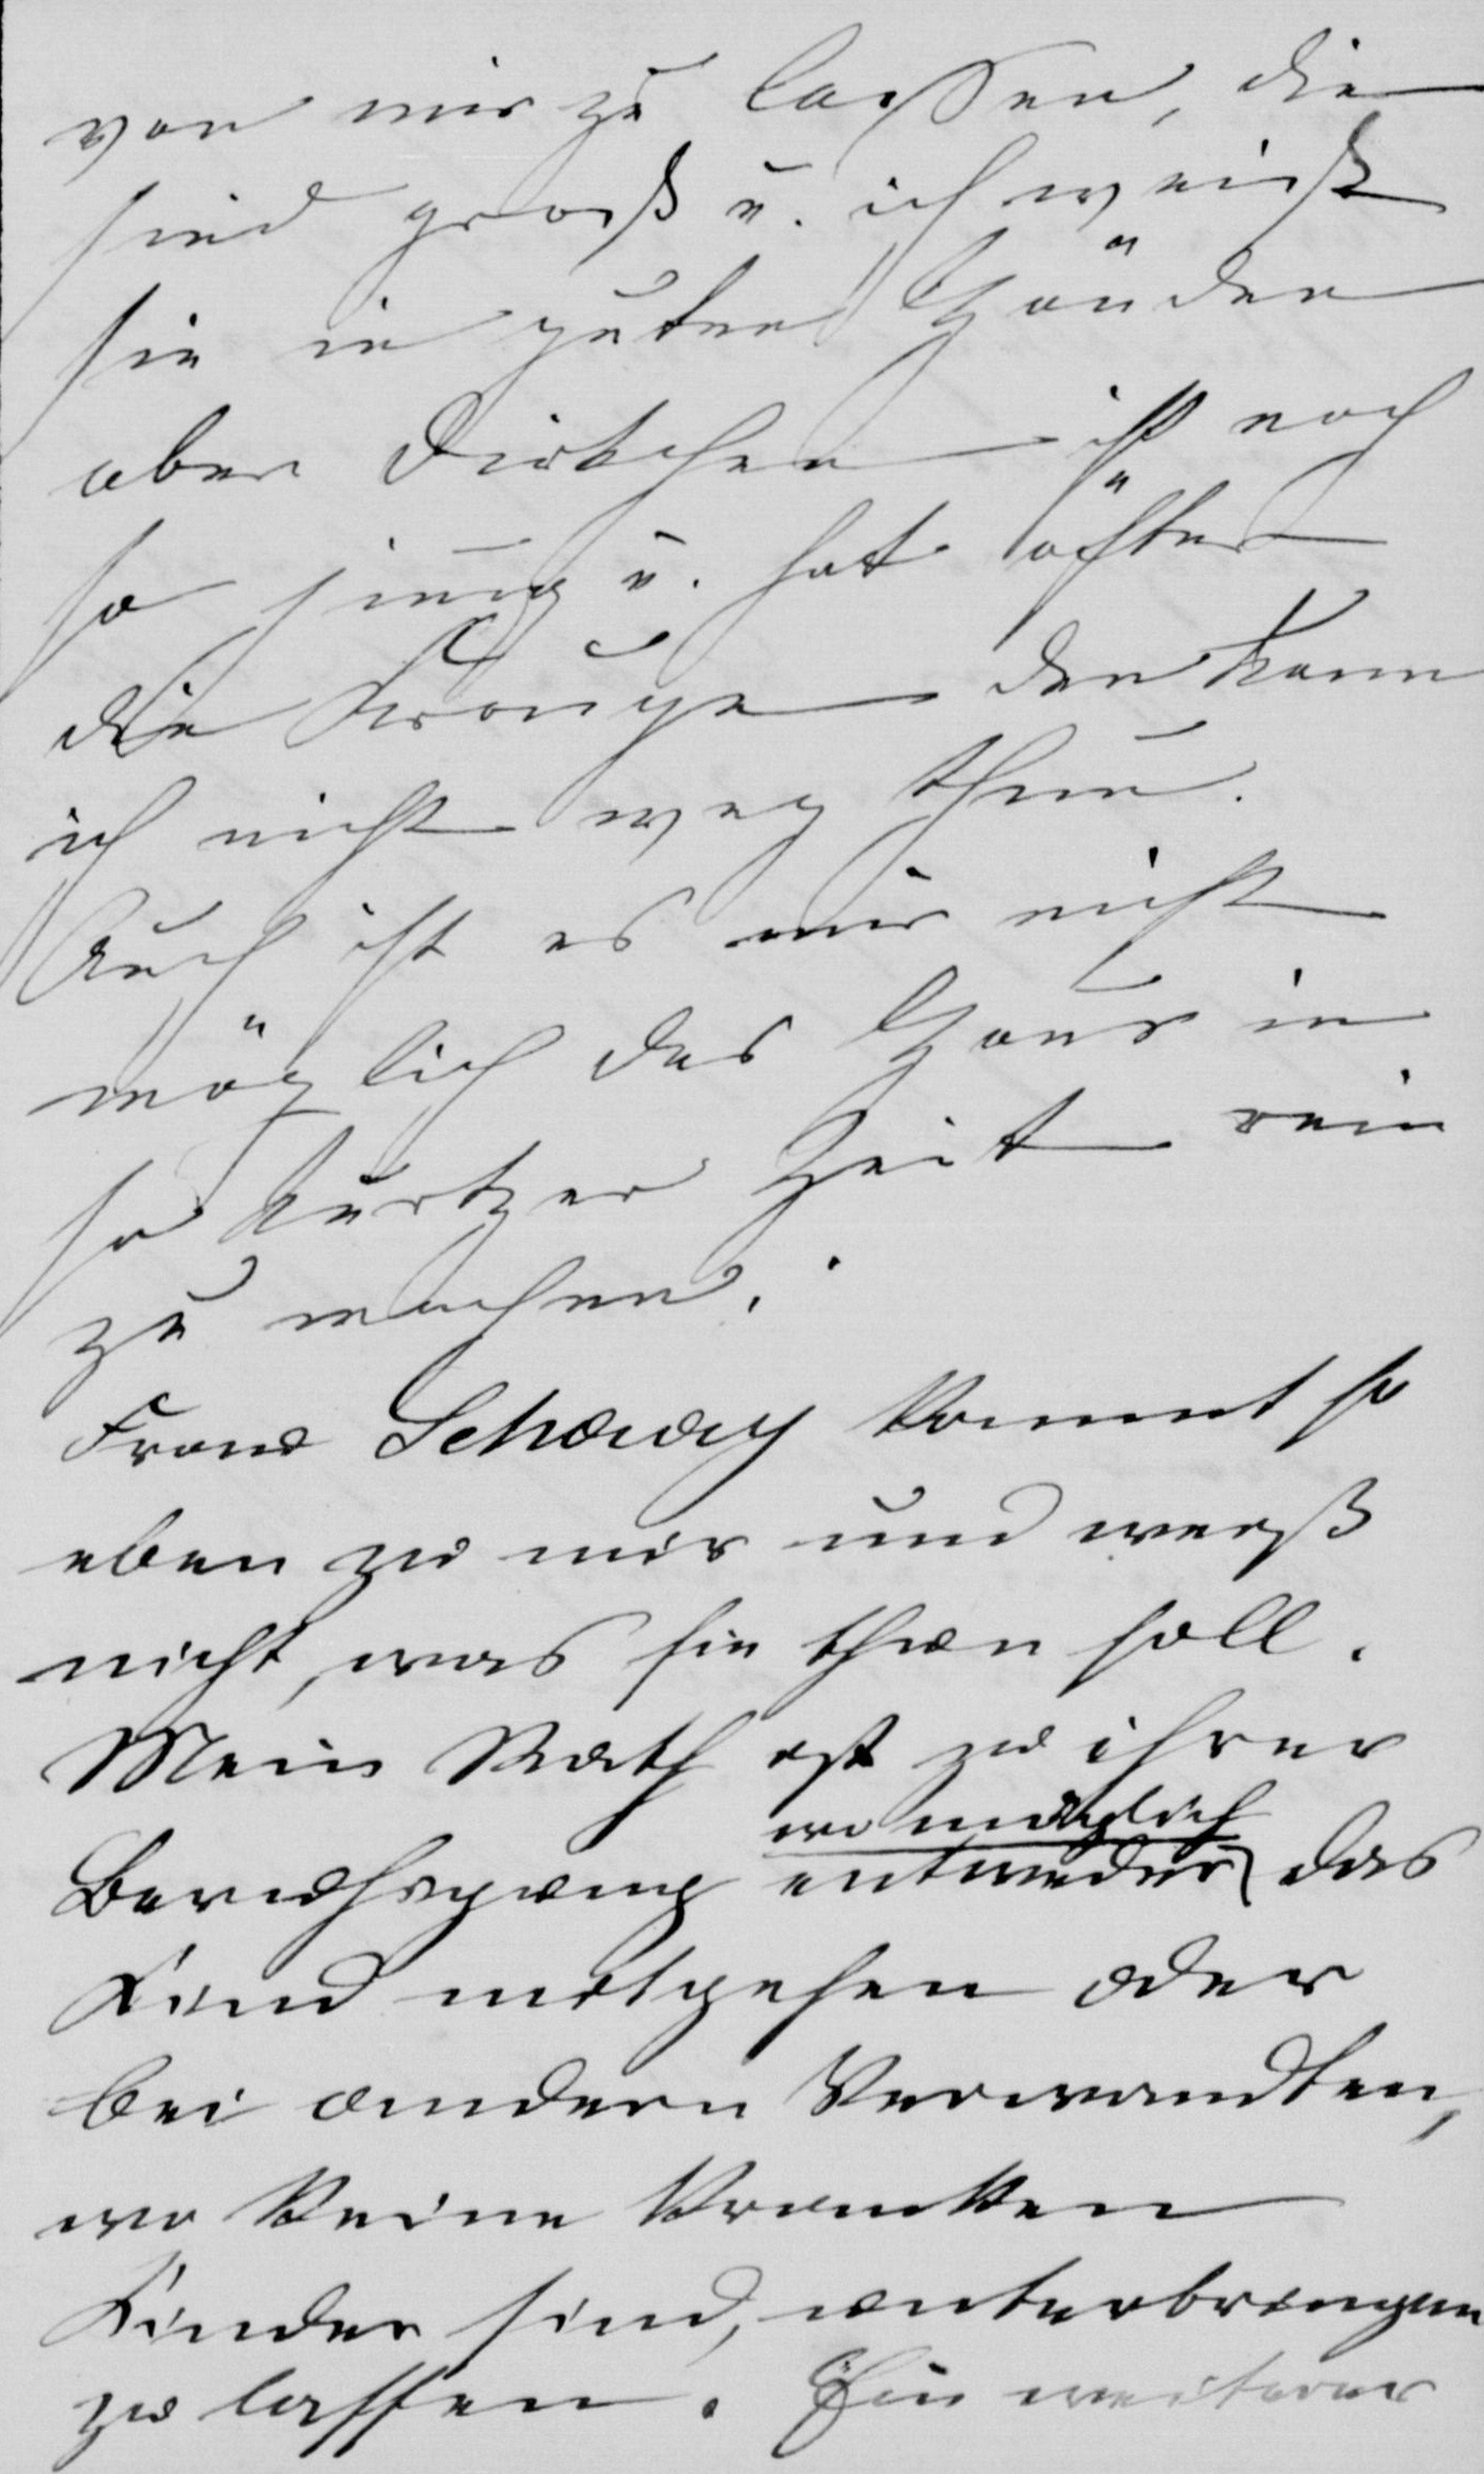 von mir zu lassen, die
sind groß u. ich weiß
sie in guten Händen
aber Dirkchen ist noch
so jung u. hat öfter
die Kroupe den kann
ich nicht weg thun.
Auch ist es mir nicht
möglich das Haus in
so kurtzer Zeit rein
zu machen.
Frau Schauay kommt so
eben zu mir und weiß
nicht, was sie thun soll.
Mein Rath ist zu ihrer
wo möglich
Beruhigung entweder das
Kind mitgehen oder
bei andern Verwandten,
wo keine kranken
Kinder sind, unterbringen
zu lassen. Ein weiterer